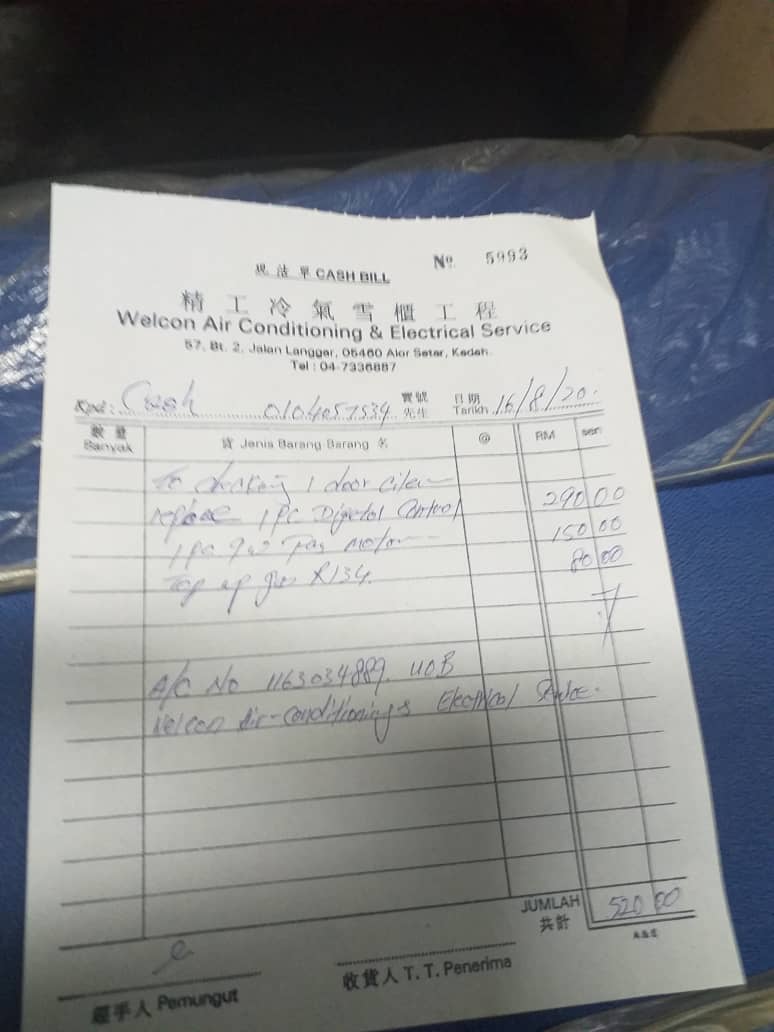 現沽單 CASH BILL
Nº 5993
精工冷氣雪櫃工程
Welcon Air Conditioning & Electrical Service
57, Bt. 2, Jalan Langgar, 05460 Alor Setar, Kedah.
Tel : 04-7336887
Kpd : Cash 0104057534 寶號 先生 日期 Tarikh 16/8/20.
數量 Banyak 貨 Jenis Barang-Barang 名 @ RM sen
To checking 1 door
replace 1 PC Digital Control 290 00
1 pc motor 150 00
Top up gas R134. 80 00
A/C No 1163034889. UOB
Welcon Air-conditioning & Electrical Service.
JUMLAH 共計 520 00
經手人 Pemungut
收貨人 T. T. Penerima